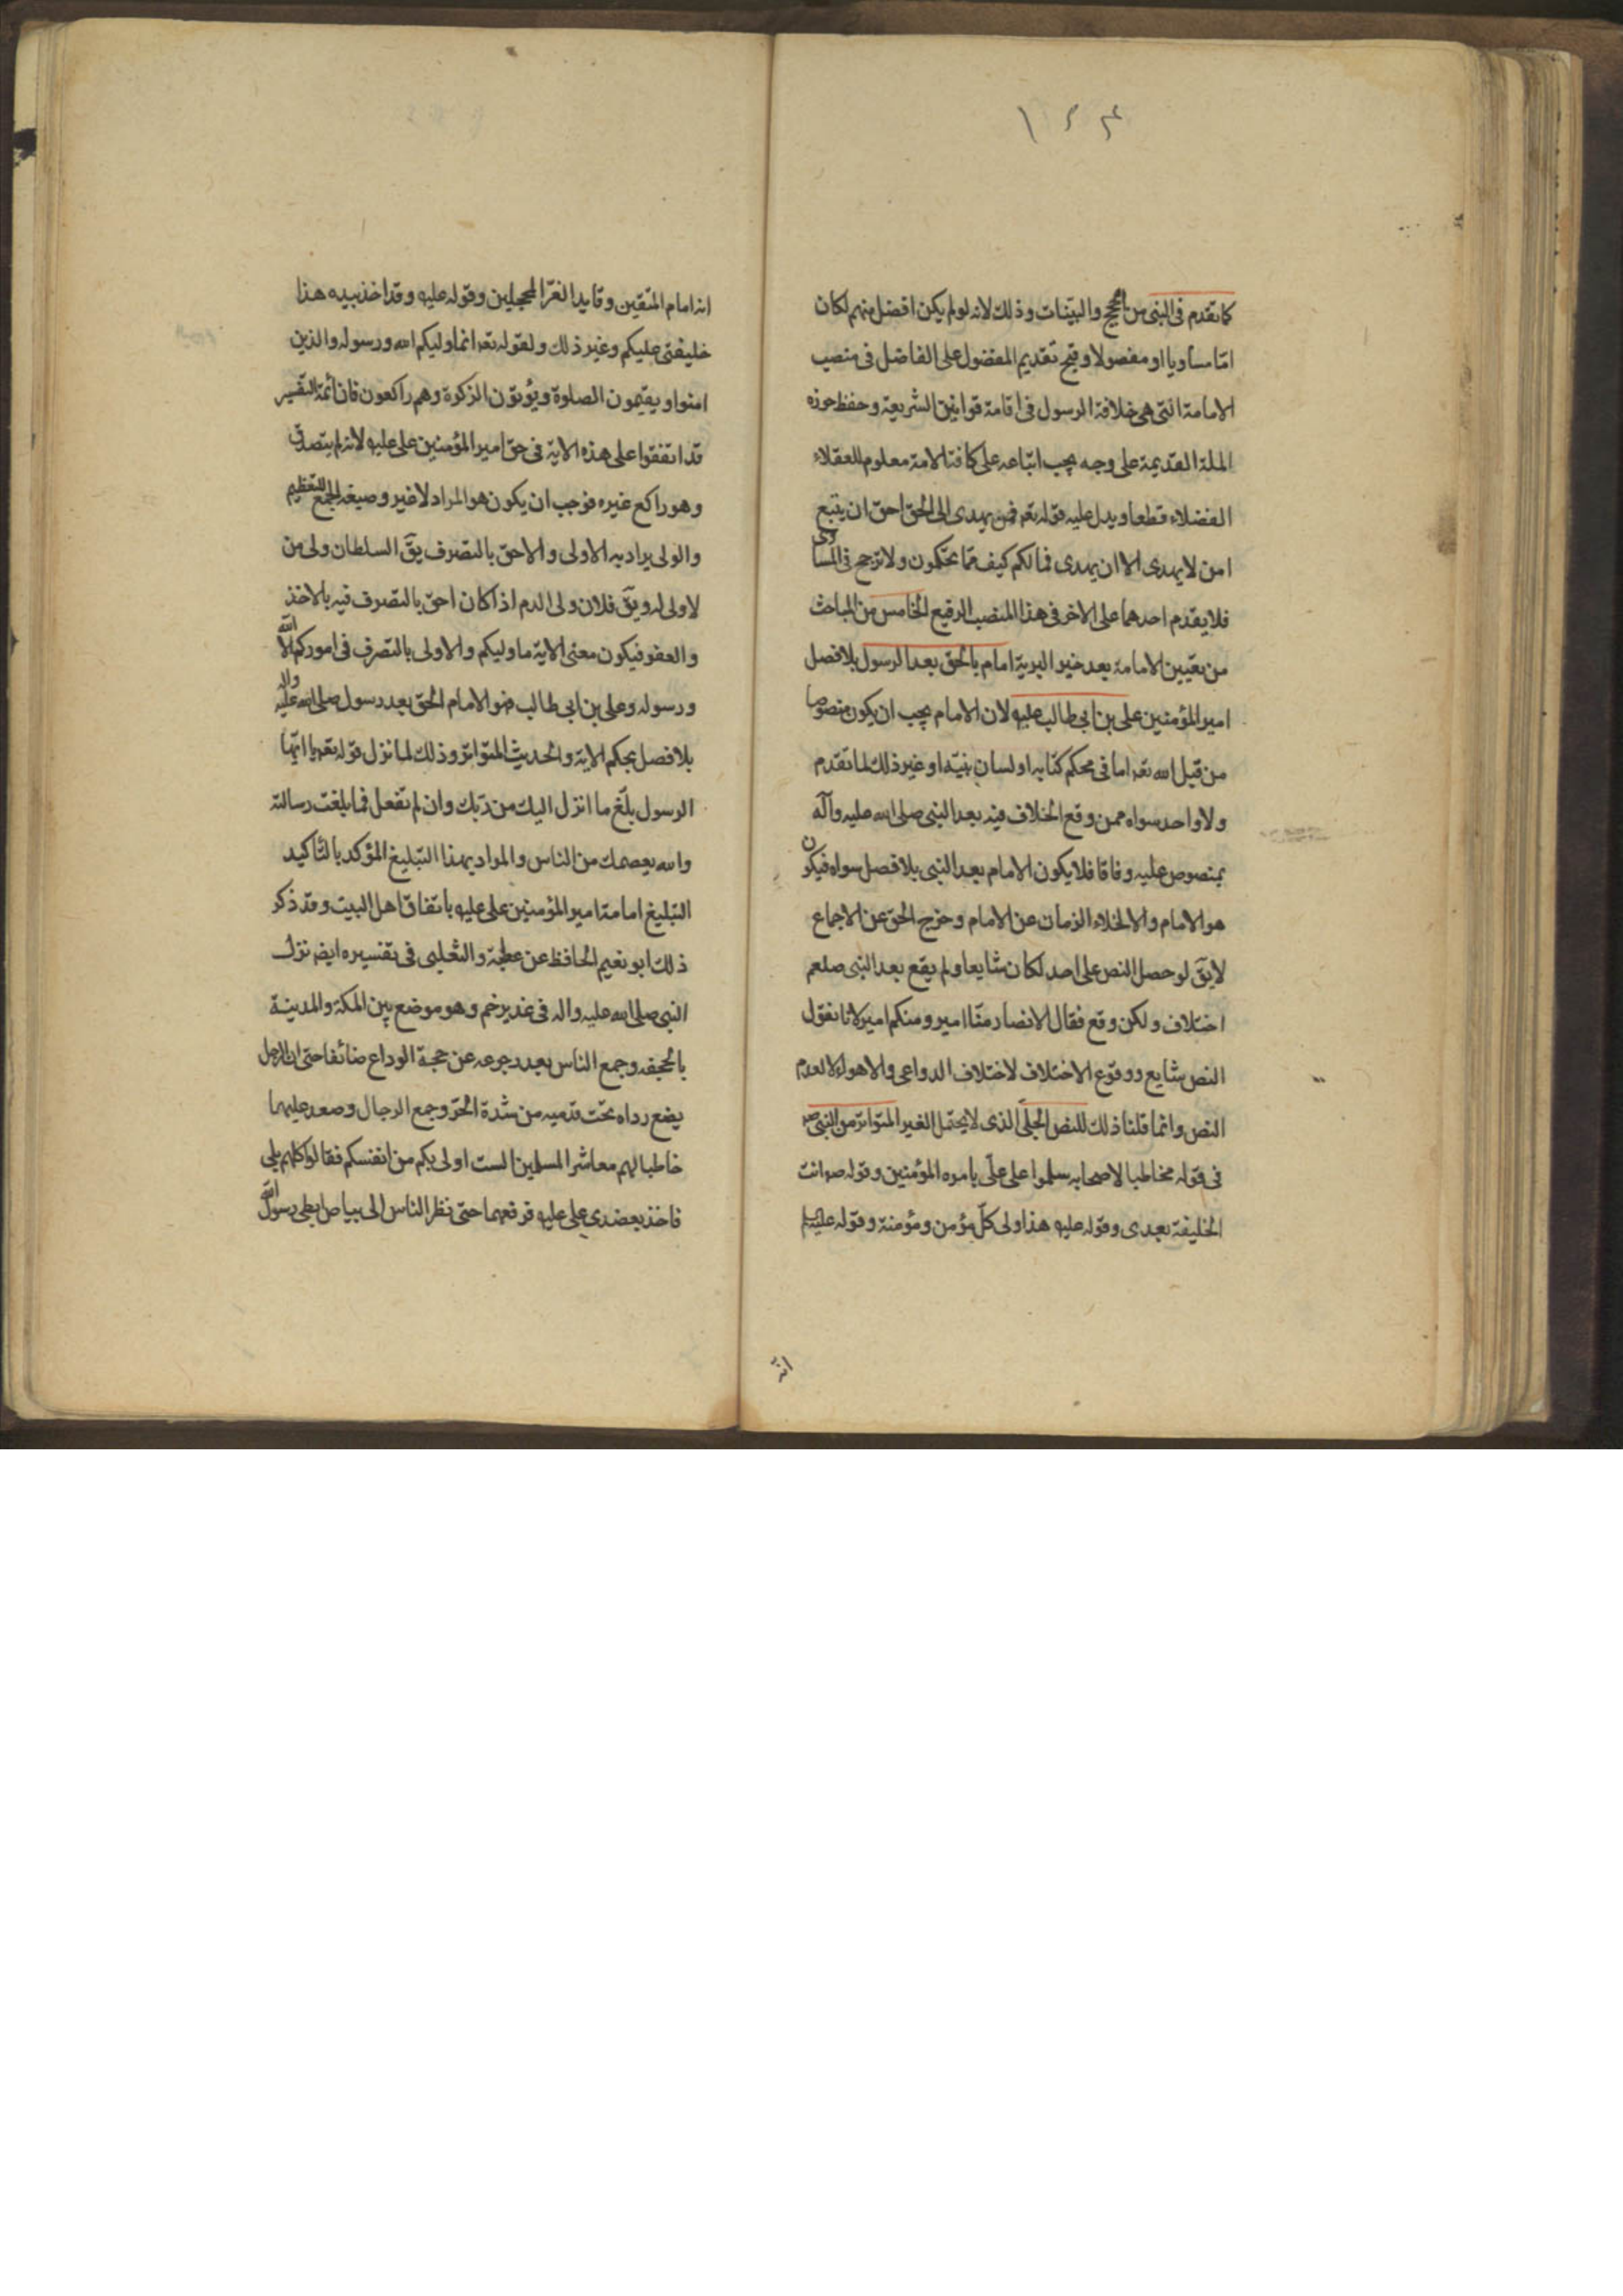 ١٤٤
كما تقدم فى النبى من الحجج والبينات وذلك لانه لو لم يكن افضل منهم لكان
اما مساويا او مفضولا وقبح تقديم المفضول على الفاضل فى منصب
الامامة التى هى خلافة الرسول فى اقامة قوانين الشريعة وحفظ حوزه
الملة القديمة على وجه يجب اتباعه على كافة الامة معلوم للعقلاء
الفضلاء قطعا ويدل عليه قوله تعه افمن يهدى الى الحق احق ان يتبع
امن لا يهدى الا ان يهدى فمالكم كيف تحكمون ولا ترجح فى المساوى
فلا يقدم احدهما على الاخر فى هذا المنصب الرفيع الخامس من المباحث
من تعيين الامامة بعد خير البرية امام بالحق بعد الرسول بلا فصل
امير المؤمنين على بن ابى طالب عليه لان الامام يجب ان يكون منصوصا
من قبل الله تعه اما فى محكم كتابه او لسان نبيّه او غير ذلك لما تقدم
ولا واحد سواه ممن وقع الخلاف فيه بعد النبى صلى الله عليه وآله
بمنصوص عليه وفاقا فلا يكون الامام بعد النبى بلا فصل سواه فيكون
هو الامام والا لخلاء الزمان عن الامام وخرج الحق عن الاجماع
لا يقّ لو حصل النص على احد لكان شايعا ولم يقع بعد النبى صلعم
اختلاف ولكن وقع فقال الانصار منّا امير ومنكم امير لانا نقول
النص شايع ووقوع الاختلاف لاختلاف الدواعى والاهواء لا لعدم
النص وانما قلنا ذلك للنص الجلىّ الذى لا يحتمل الغير المتواتر من النبى ص
فى قوله مخاطبا لاصحابه سلموا على علّى بامره المؤمنين وقوله ص انت
الخليفة بعدى وقوله عليه هذا ولى كلّ مؤمن ومؤمنة وقوله عليه
انه
انه امام المتقين وقايد الغرّ المحجلين وقوله عليه وقد اخذ بيده هذا
خليفتى عليكم وغير ذلك ولقوله تعه انما وليكم الله ورسوله والذين
امنوا ويقيمون الصلوة ويؤتون الزكوة وهم راكعون فان أئمة التفسير
قد اتفقوا على هذه الاية فى حق امير المؤمنين على عليه لانه لم يتصدق
وهو راكع غيره فوجب ان يكون هو المراد لا غير وصيغه الجمع للتعظيم
والولى يراد به الاولى والاحق بالتصرف يقّ السلطان ولى من
لا ولى له ويقّ فلان ولى الدم اذا كان احق بالتصرف فيه بالاخذ
والعفو فيكون معنى الاية ما وليكم والاولى بالتصرف فى اموركم الا الله
ورسوله وعلى بن ابى طالب فهو الامام الحق بعد رسول صلى الله عليه واله
بلا فصل بحكم الاية والحديث المتواتر وذلك لما نزل قوله تعه يا ايّها
الرسول بلّغ ما انزل اليك من ربّك وان لم تفعل فما بلغت رسالته
والله يعصمك من الناس والمراد بهذا التبليغ المؤكد بالتأكيد
التبليغ امامة امير المؤمنين على عليه باتفاق اهل البيت وقد ذكر
ذلك ابو نعيم الحافظ عن عطية والثعلبى فى تفسيره ايضه نزل
النبى صلى الله عليه واله فى غدير خم وهو موضع بين المكة والمدينة
بالجحفه وجمع الناس بعد رجوعه عن حجة الوداع صائفا حتى ان الرجل
يضع رداه تحت قدميه من شدة الحرّ وجمع الرحال وصعد عليها
خاطبا لهم معاشر المسلمين الست اولى بكم من انفسكم فقالوا كلهم بلى
فاخذ بعضدى على عليه فرفعهما حتى نظر الناس الى بياض ابطى رسول الله